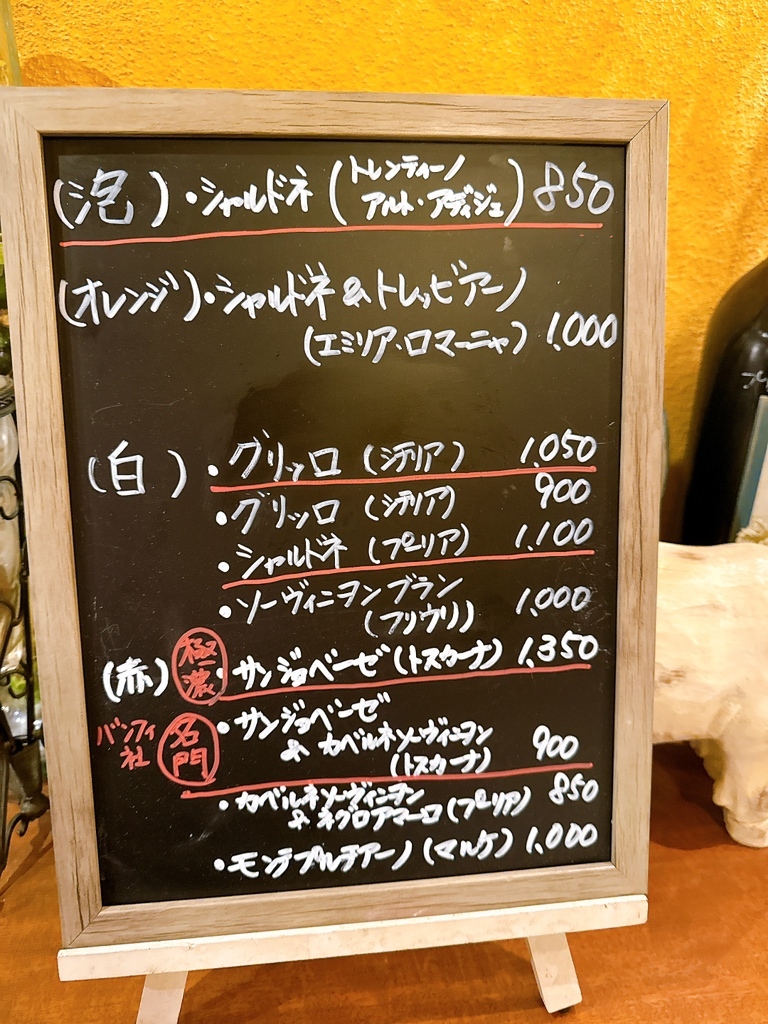 (泡)・シャルドネ(トレンティーノ アルト・アディジェ) 850
(オレンジ)・シャルドネ&トレッビアーノ
(エミリア・ロマーニャ) 1.000
(白)・グリッロ(シチリア) 1.050
・グリッロ(シチリア) 900
・シャルドネ(プーリア) 1.100
・ソーヴィニヨンブラン
(フリウリ) 1.000
(赤) 極濃・サンジョベーゼ(トスカーナ) 1.350
バンフィ社 名門・サンジョベーゼ
&カベルネソーヴィニヨン
(トスカーナ) 900
・カベルネソーヴィニヨン
&ネグロアマーロ(プーリア) 850
・モンテプルチアーノ(マルケ) 1.000